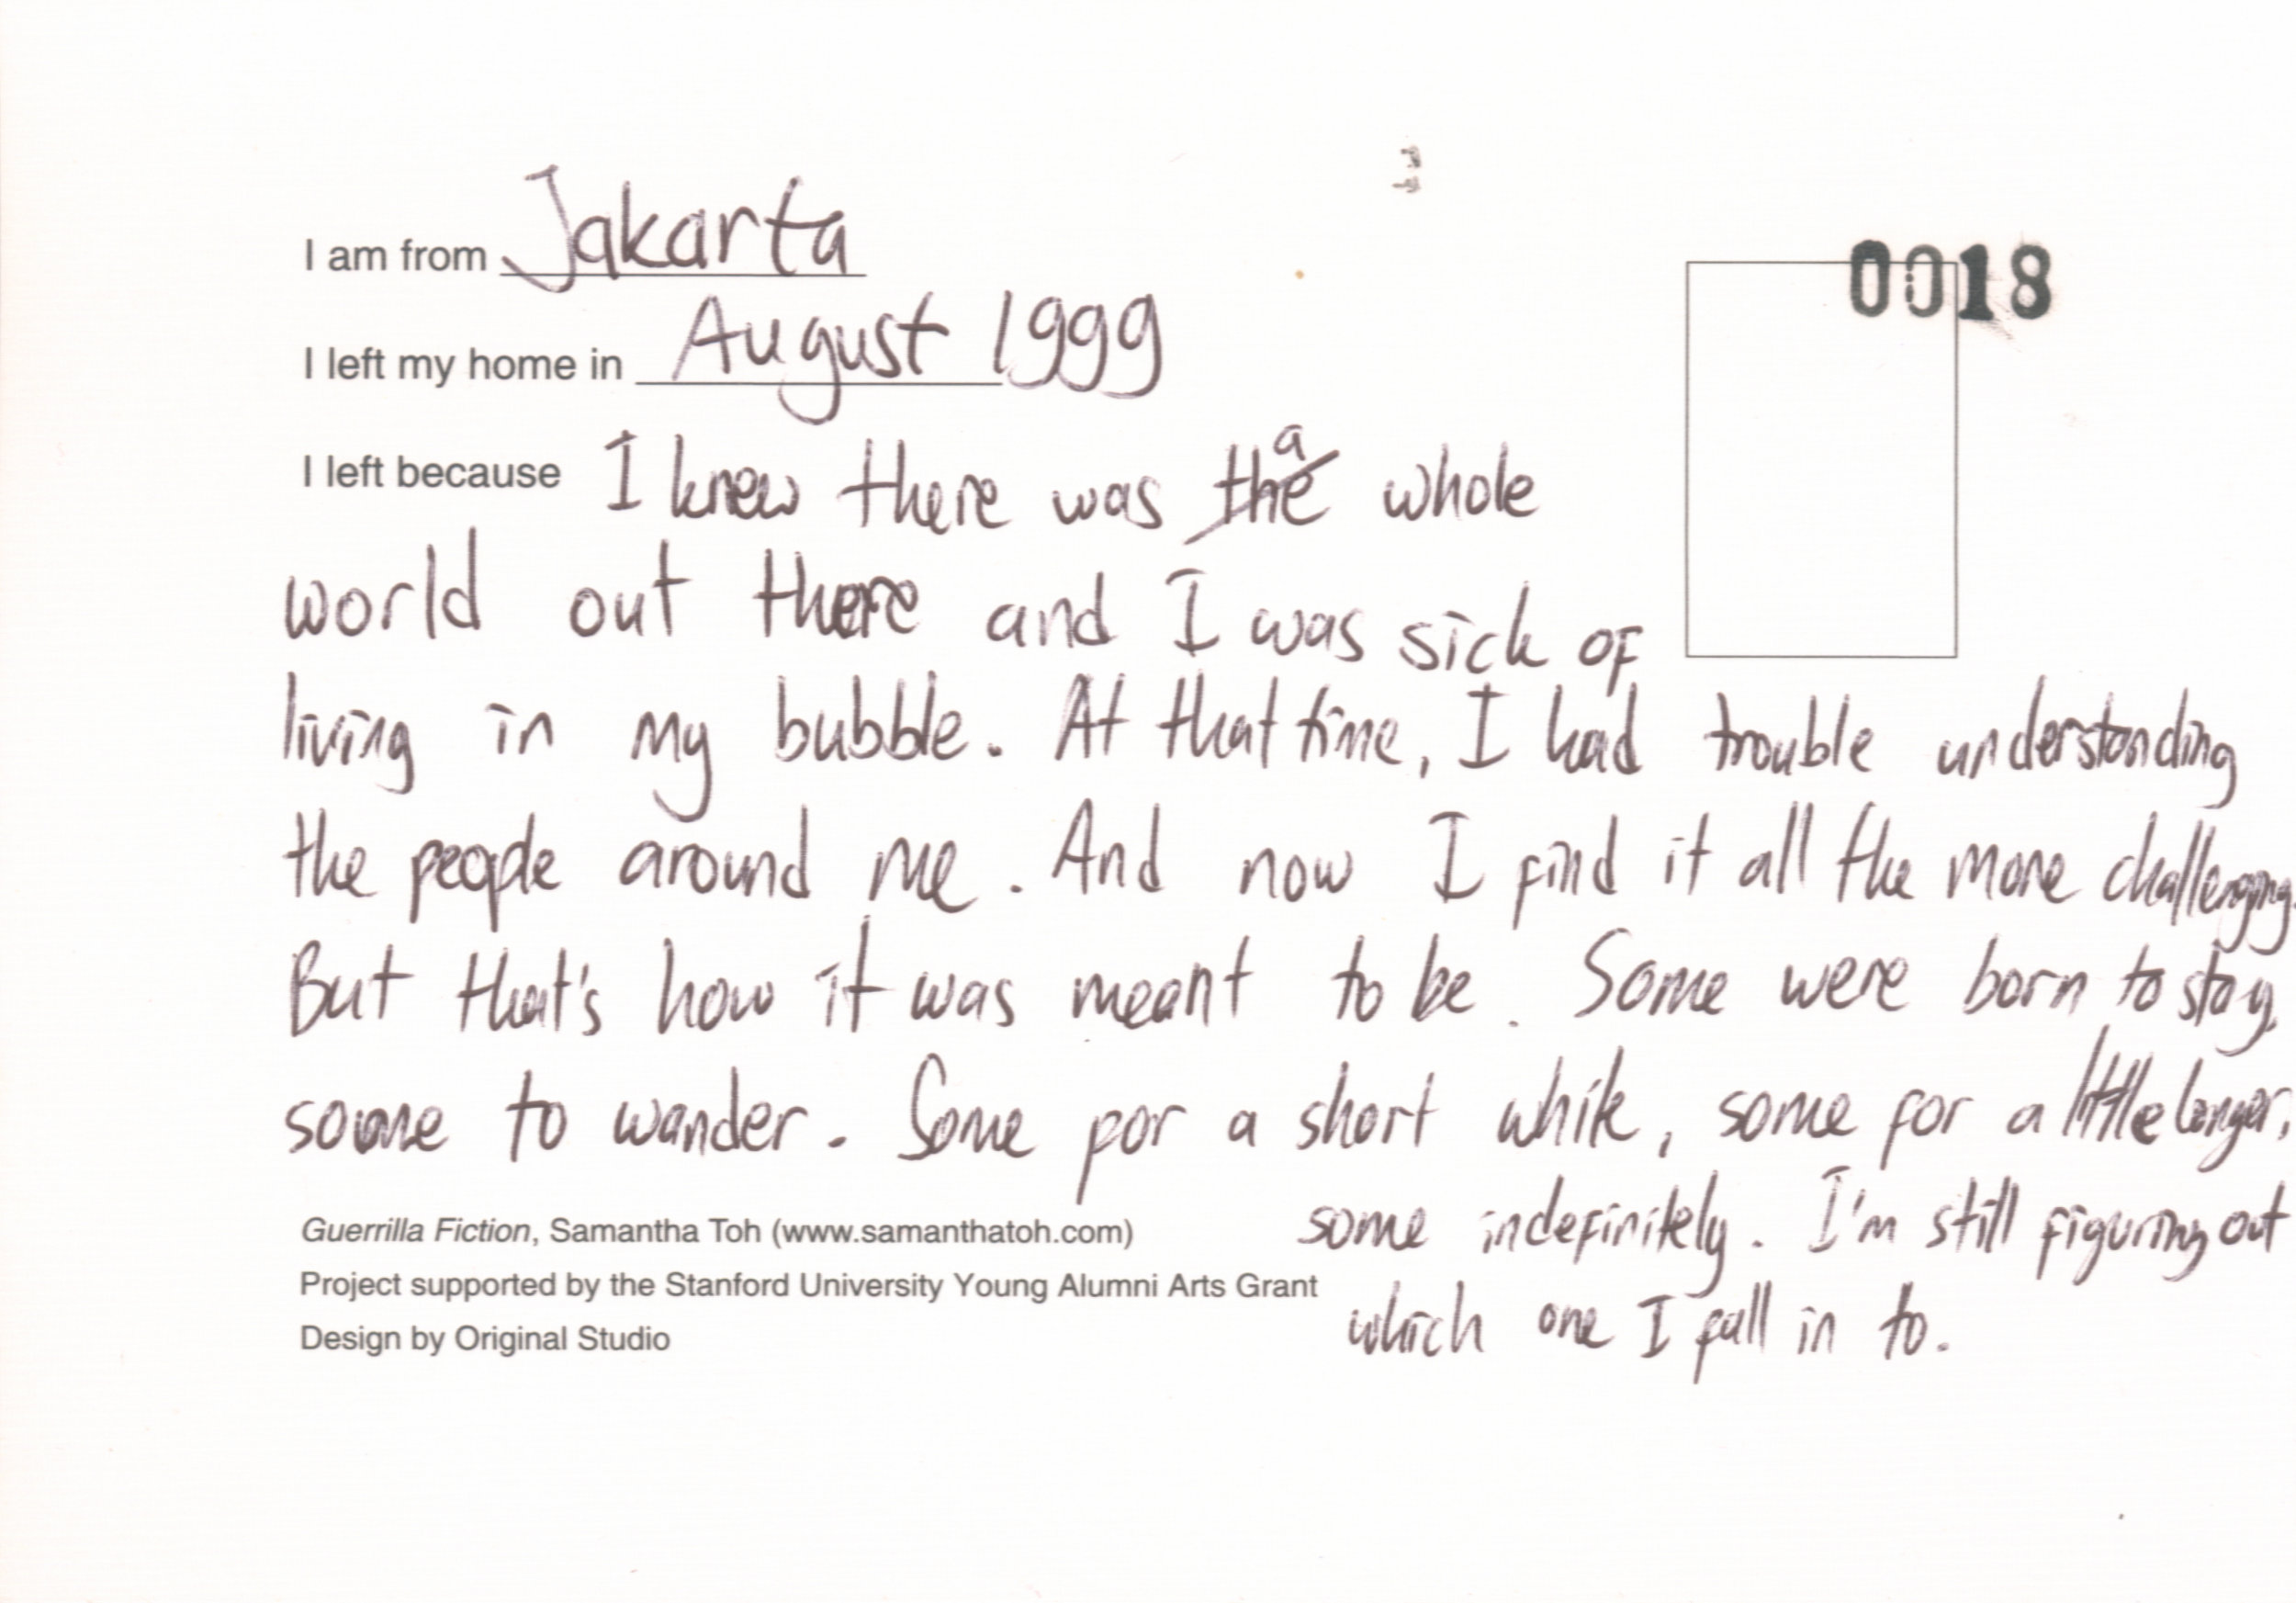 I am from Jakarta
0018
I left my home in August 1999
a
I left because I knew there was the whole
world out there and I was sick of
living in my bubble. At that time, I had trouble understanding
the people around me. And now I find it all the more challenging.
But that's how it was meant to be. Some were born to stay,
some to wander. Some for a short while, some for a little longer,
some indefinitely. I'm still figuring out
which one I fall in to.
Guerrilla Fiction, Samantha Toh (www.samanthatoh.com)
Project supported by the Stanford University Young Alumni Arts Grant
Design by Original Studio